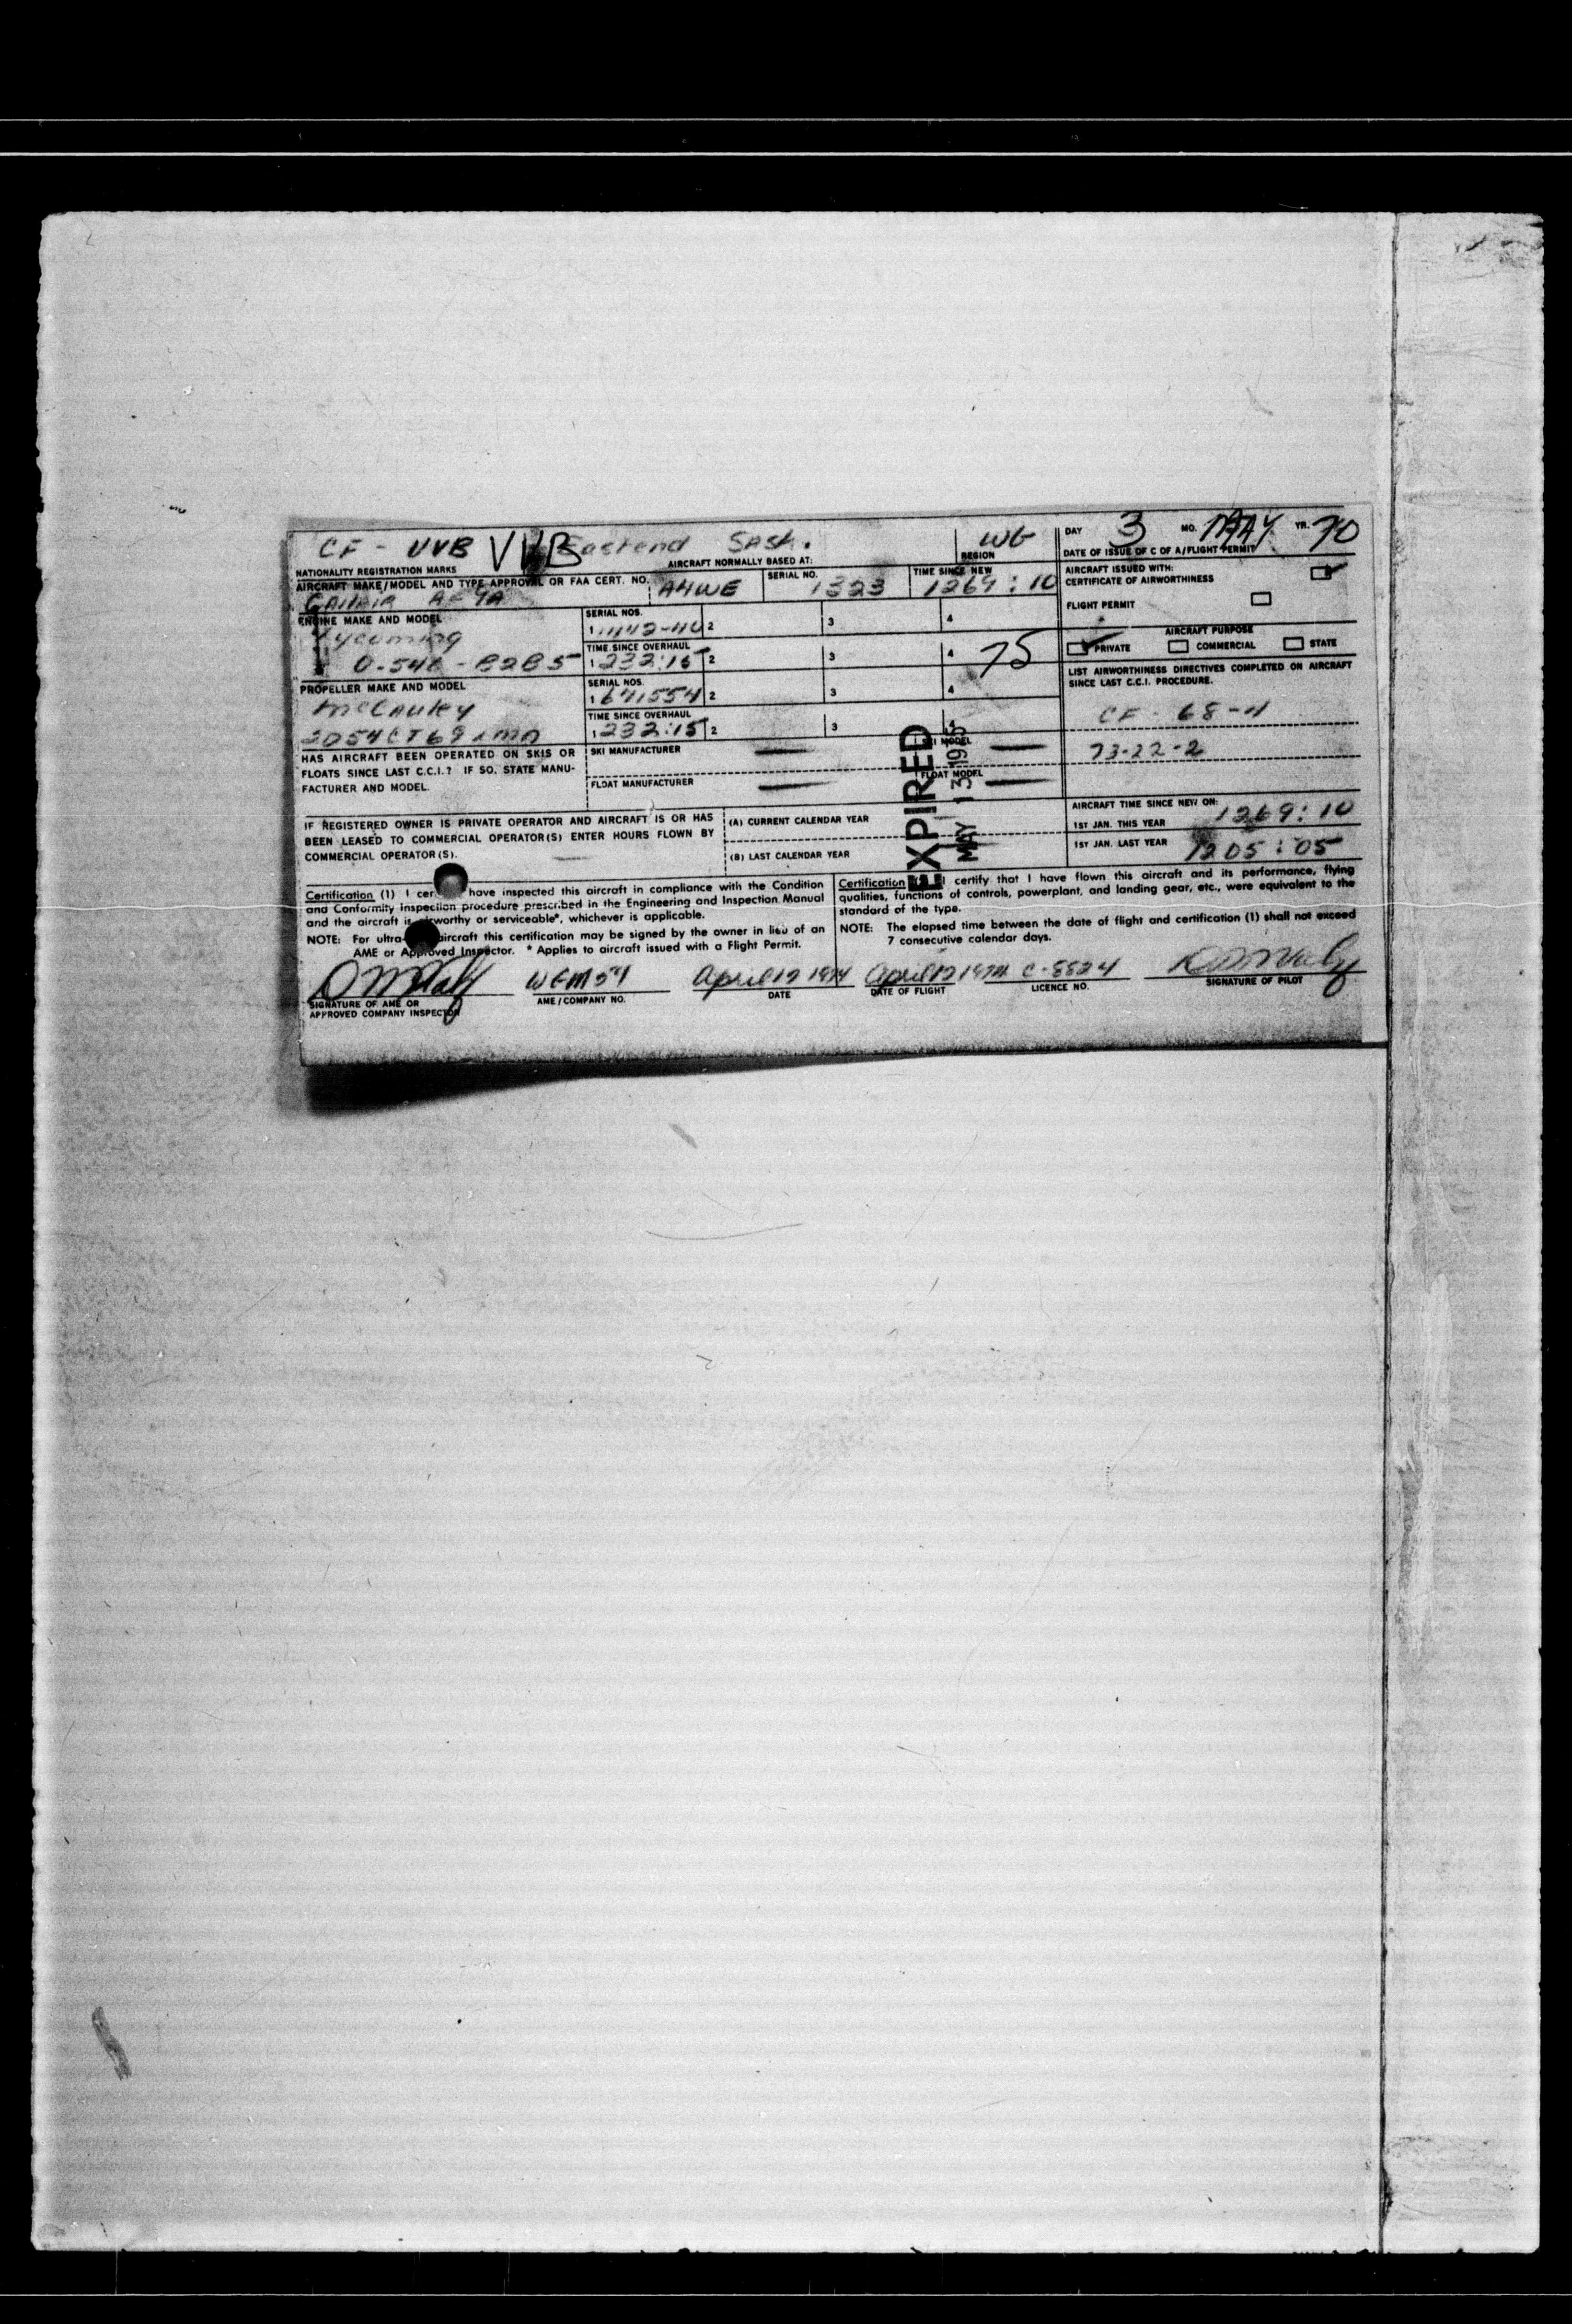 CF - VVB VVB Eastend Sask. WG DAY 3 MO. MAY YR. 70
NATIONALITY REGISTRATION MARKS AIRCRAFT NORMALLY BASED AT: REGION DATE OF ISSUE OF C OF A/FLIGHT PERMIT
AIRCRAFT MAKE/MODEL AND TYPE APPROVAL OR FAA CERT. NO. A4WE SERIAL NO. 1323 TIME SINCE NEW 1269:10
AIRCRAFT ISSUED WITH:
CERTIFICATE OF AIRWORTHINESS
FLIGHT PERMIT
ENGINE MAKE AND MODEL
Lycoming
O-540-B2B5
SERIAL NOS.
1 2 3 4
TIME SINCE OVERHAUL
1 232:15 2 3 4 75
AIRCRAFT PURPOSE
PRIVATE COMMERCIAL STATE
PROPELLER MAKE AND MODEL
McCauley
SERIAL NOS.
1 641554 2 3 4
TIME SINCE OVERHAUL
1 232:15 2 3 4
LIST AIRWORTHINESS DIRECTIVES COMPLETED ON AIRCRAFT
SINCE LAST C.C.I. PROCEDURE.
CF - 68-4
73-22-2
HAS AIRCRAFT BEEN OPERATED ON SKIS OR
FLOATS SINCE LAST C.C.I.? IF SO, STATE MANU-
FACTURER AND MODEL.
SKI MANUFACTURER SKI MODEL
FLOAT MANUFACTURER FLOAT MODEL
EXPIRED
MAY 1 3 1975
IF REGISTERED OWNER IS PRIVATE OPERATOR AND AIRCRAFT IS OR HAS
BEEN LEASED TO COMMERCIAL OPERATOR(S) ENTER HOURS FLOWN BY
COMMERCIAL OPERATOR(S).
(A) CURRENT CALENDAR YEAR
(B) LAST CALENDAR YEAR
AIRCRAFT TIME SINCE NEW ON:
1ST JAN. THIS YEAR 1269:10
1ST JAN. LAST YEAR 1205:05
Certification (1) I cer have inspected this aircraft in compliance with the Condition
and Conformity inspection procedure prescribed in the Engineering and Inspection Manual
and the aircraft is airworthy or serviceable*, whichever is applicable.
NOTE: For ultra- aircraft this certification may be signed by the owner in lieu of an
AME or Approved Inspector. * Applies to aircraft issued with a Flight Permit.
Certification I certify that I have flown this aircraft and its performance, flying
qualities, functions of controls, powerplant, and landing gear, etc., were equivalent to the
standard of the type.
NOTE: The elapsed time between the date of flight and certification (1) shall not exceed
7 consecutive calendar days.
April 12 1974 April 12 1974 C-8824
SIGNATURE OF AME OR
APPROVED COMPANY INSPECTOR
AME/COMPANY NO. DATE DATE OF FLIGHT LICENCE NO. SIGNATURE OF PILOT